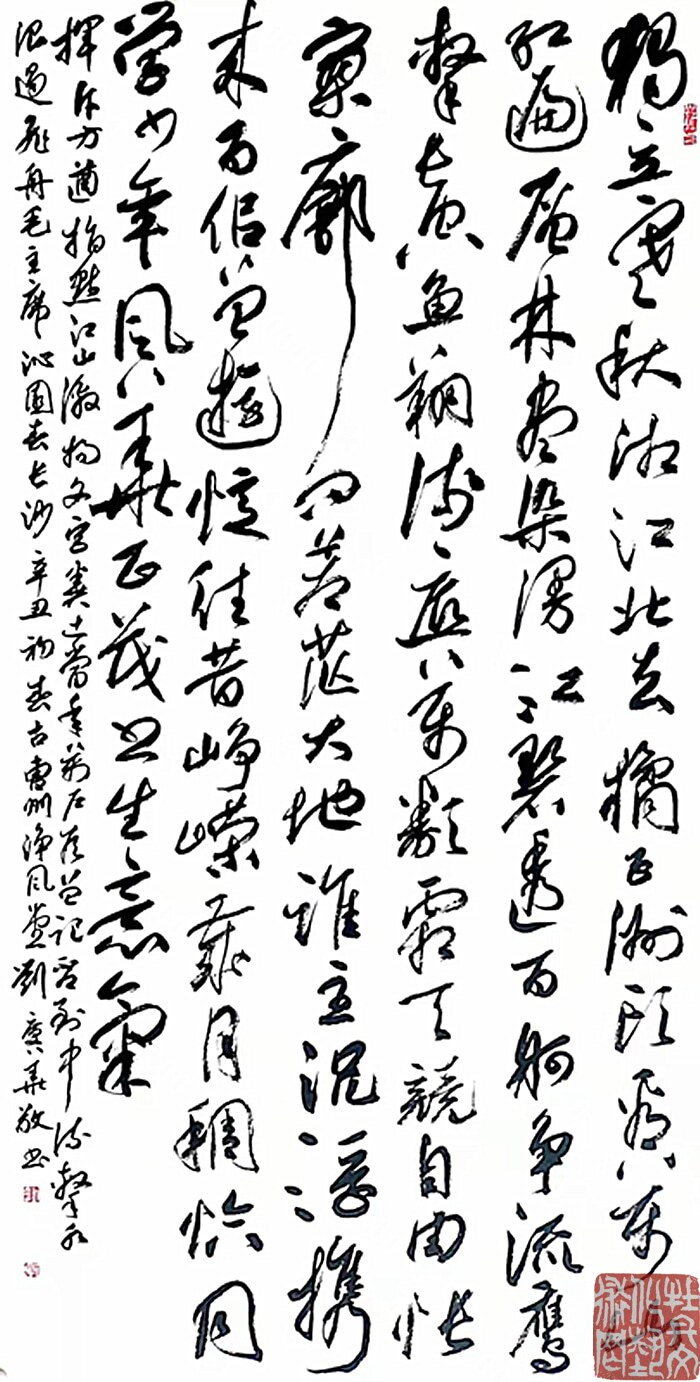 獨立寒秋湘江北去橘子洲頭看萬山
紅遍層林盡染漫江碧透百舸爭流鷹
擊長空魚翔淺底萬類霜天競自由悵
寥廓問蒼茫大地誰主沉浮攜
來百侶曾遊憶往昔崢嶸歲月稠恰同
學少年風華正茂書生意氣
揮斥方遒指點江山激揚文字糞土當年萬戶侯曾記否到中流擊水
浪遏飛舟毛主席沁園春長沙辛丑初春古州淨風堂劉廣華敬書